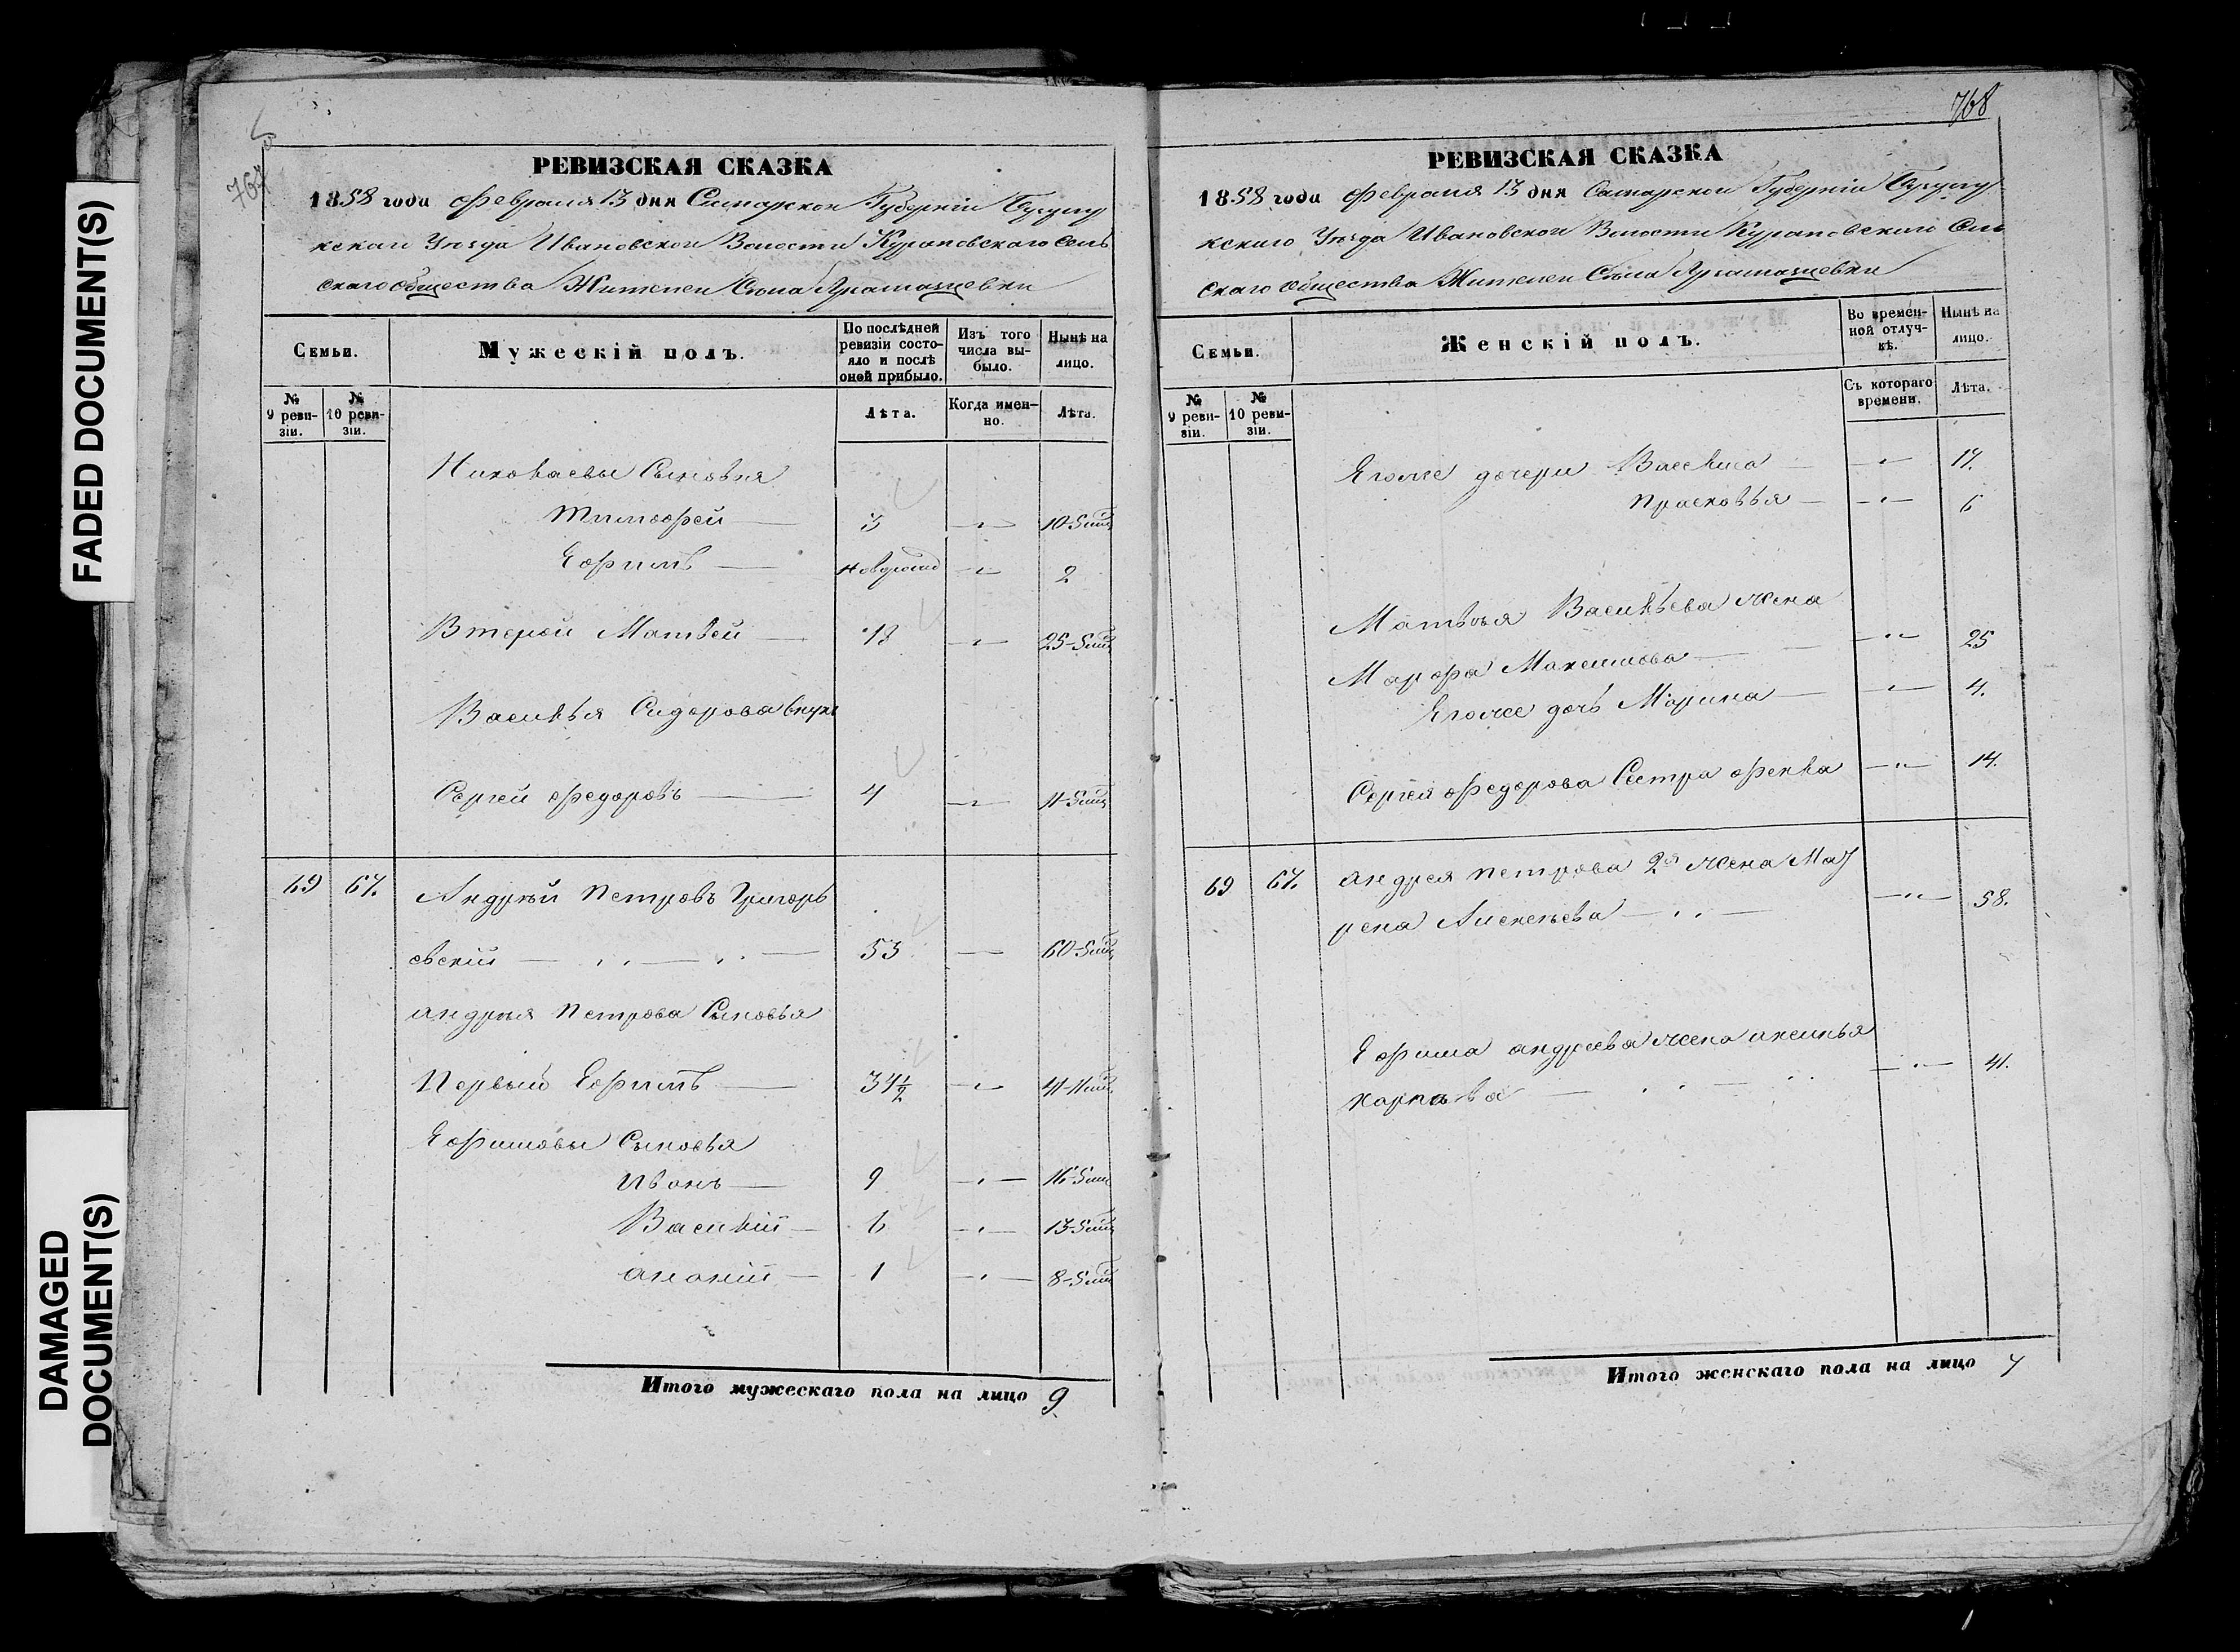 FADED DOCUMENT(S)
DAMAGED
DOCUMENT(S)
РЕВИЗСКАЯ СКАЗКА
1858 года Февраля 13 дня Самарской Губерніи Бугуру
скаго Уѣзда Ивановской Волости Селъ
скаго общества Жителей Села
Семьи.
Мужескій полъ.
По послѣдней ревизіи состояло и послѣ оной прибыло.
Изъ того числа выбыло.
Ныне на лицо.
№ 9 ревизіи.
№ 10 ревизіи.
Лѣта.
Когда именно.
Лѣта.
Николаевы Сыновья
Тимофей — 3 — 10-5
Ефимъ — новорожд — 2
Второй Матвей — 18 — 25-5
Василья Сидорова внукъ
Сергей Федоровъ — 4 — 11-5
69 67. Андрей Петровъ Григорь
евскій — 53 — 60-5
Андрея Петрова Сыновья
Первый Ефимъ — 34½ — 41-11
Ефимовы Сыновья
Иванъ — 9 — 16-5
Василій — 6 — 13-5
Ананій — 1 — 8-5
Итого мужескаго пола на лицо 9
768
РЕВИЗСКАЯ СКАЗКА
1858 года Февраля 13 дня Самарской Губерніи Бугуру
скаго Уѣзда Ивановской Волости Сель
скаго общества Жителей Села
Семьи.
Женскій полъ.
Во временной отлучкѣ.
Нынѣ на лицо.
№ 9 ревизіи.
№ 10 ревизіи.
Съ котораго времени.
Лѣта.
Егоже дочери Василиса — 17.
Прасковья — 6
Матвея Васильева жена
Марфа Максимова — 25
Егоже дочь Марина — 4.
Сергея Федорова Сестра Фекла — 14.
69 67. Андрея Петрова 2я жена Мау
рена Алексеева — 58.
Ефима Андреева жена Аксинья
Карпова — 41.
Итого женскаго пола на лицо 7